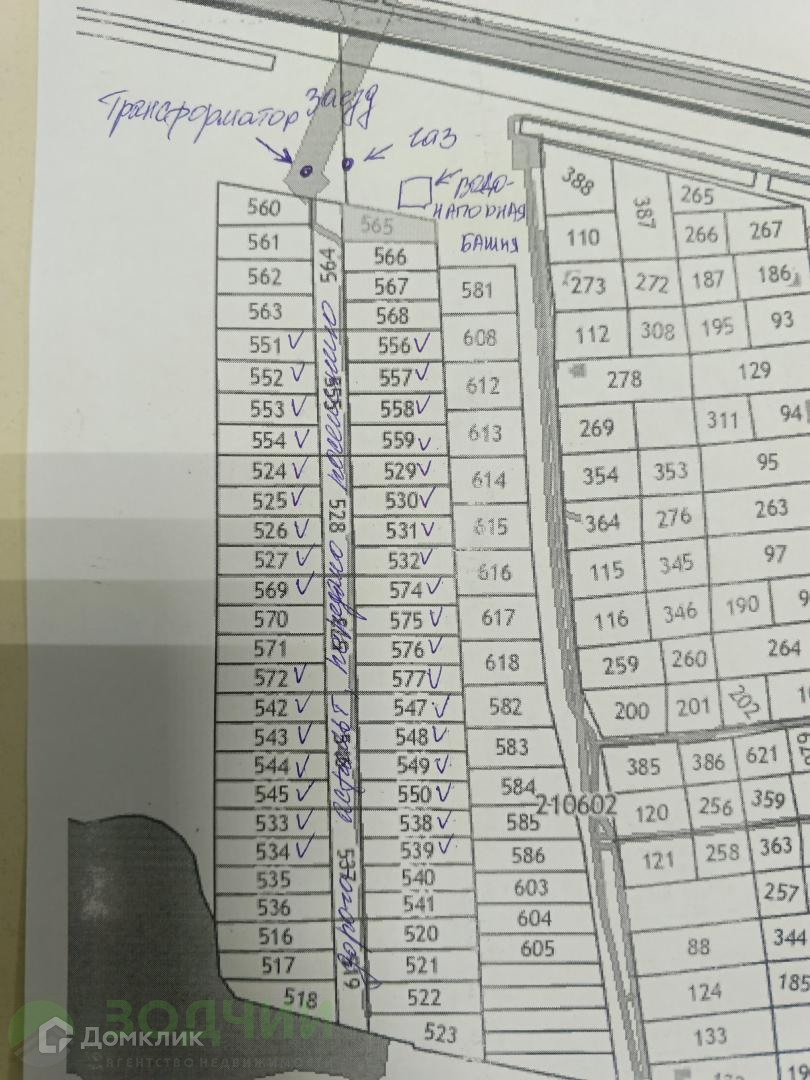 Трансформатор
заезд
газ
водо-
напорная
башня
560
561
562
563
551
552
553
554
524
525
526
527
569
570
571
572
542
543
544
545
533
534
535
536
516
517
518
564
555
528
537
519
дорога асфальт, передано
565
566
567
568
556
557
558
559
529
530
531
532
574
575
576
577
547
548
549
550
538
539
540
541
520
521
522
523
581
608
612
613
614
615
616
617
618
582
583
584
585
586
603
604
605
210602
388
387
265
110
266
267
273
272
187
186
112
308
195
93
278
129
269
311
94
354
353
95
364
276
263
115
345
97
116
346
190
259
260
264
200
201
202
385
386
621
120
256
359
121
258
363
257
88
344
124
185
133
ЗОДЧИЙ
агентство недвижимости
Домклик